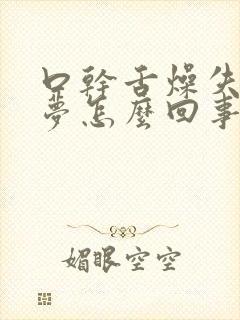 口幹舌燥失
夢怎麼回事
媚眼空空